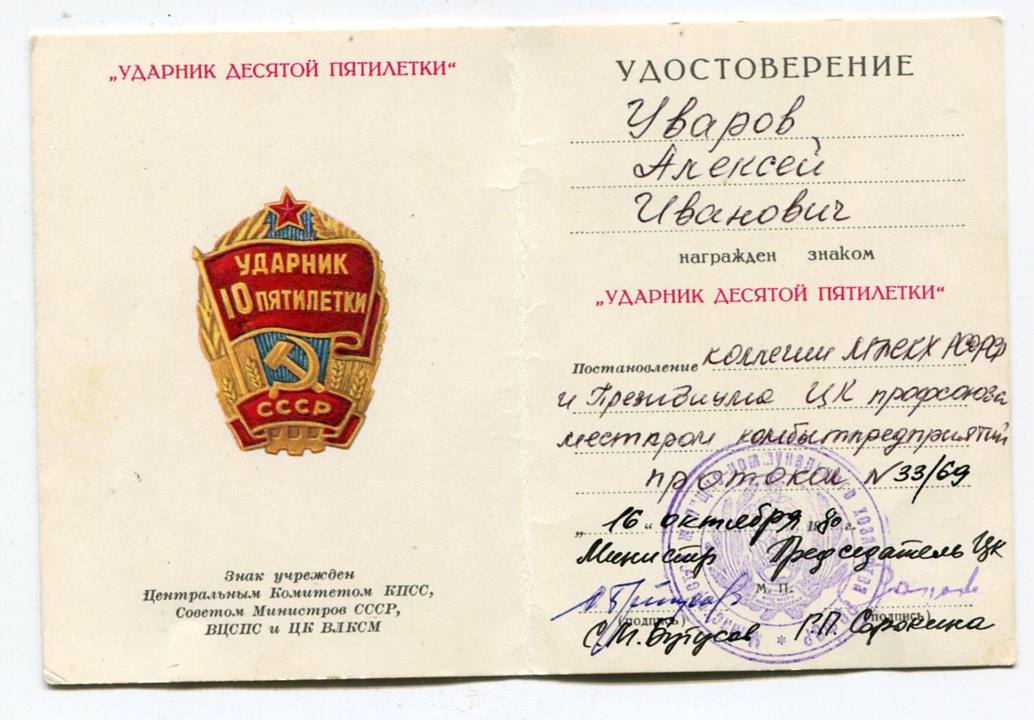 „УДАРНИК ДЕСЯТОЙ ПЯТИЛЕТКИ“
УДАРНИК
10 ПЯТИЛЕТКИ
СССР
Знак учрежден
Центральным Комитетом КПСС,
Советом Министров СССР,
ВЦСПС и ЦК ВЛКСМ
УДОСТОВЕРЕНИЕ
Уваров
Алексей
Иванович
награжден знаком
„УДАРНИК ДЕСЯТОЙ ПЯТИЛЕТКИ“
Постановление коллегии МЖКХ РСФСР
и Президиума ЦК профсоюза
местпром комбытпредприятий
протокол N 33/69
„16“ октября 1980 г.
Министр Председатель ЦК
М. П.
(подпись) (подпись)
С.М. Бутусов Г.П. Сорокина
коммунального хозяйства РСФСР